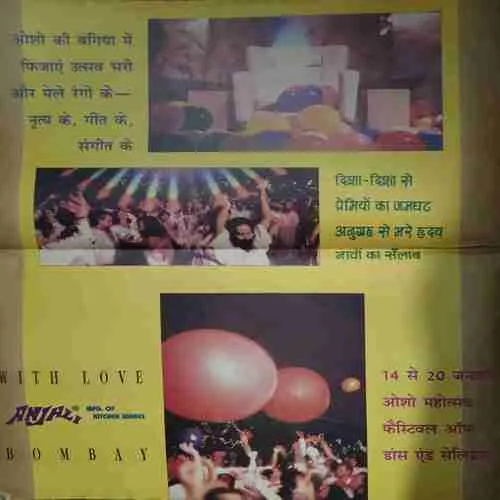 ओशो की बगिया में
फिजाएं उत्सव भरी
और मेले रंगों के—
नृत्य के, गीत के,
संगीत के
दिशा-दिशा से
प्रेमियों का जमघट
अनुग्रह से भरे हृदय
भावों का सैलाब
WITH LOVE
ANJALI
MFG. OF
KITCHEN
BOMBAY
14 से 20
ओशो महोत्सव
फैस्टिवल ऑफ
डांस एंड